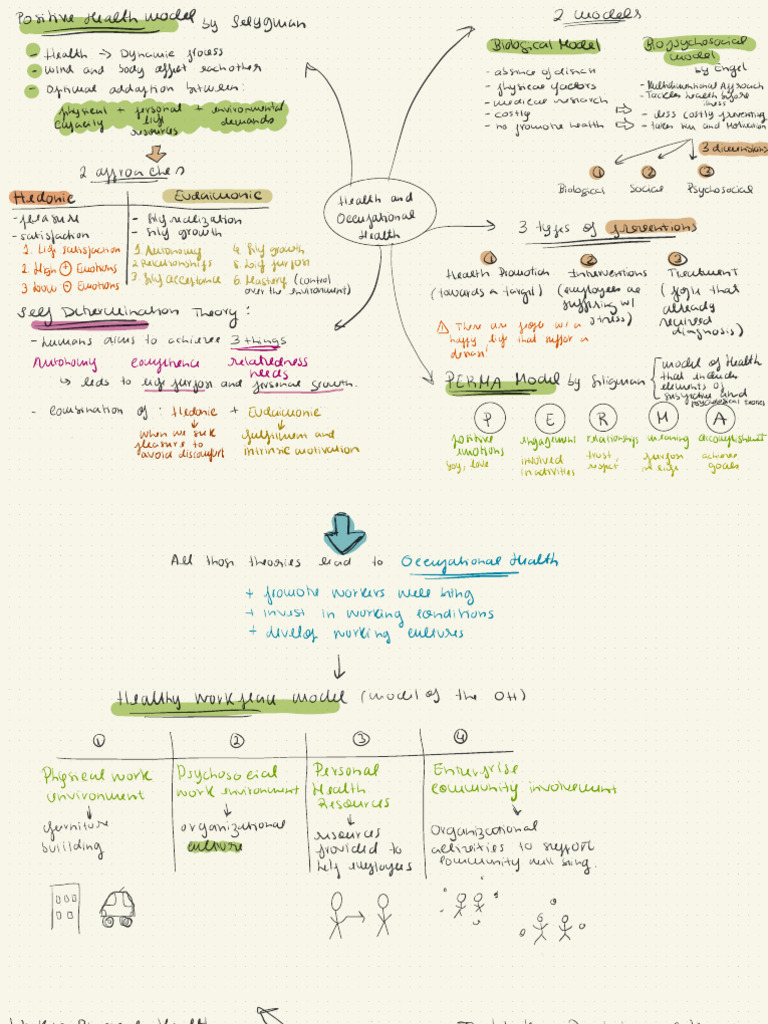 Positive Health Model by Selygman
- Health → Dynamic process
- Mind and body affect eachother
- Optimal adaption between:
physical + personal + environmental
capacity life demands
resources
2 approaches
Hedonic
- pleasure
- satisfaction
1. Life satisfaction
2. High + Emotions
3 Low - Emotions
Eudaimonic
- self realization
- self growth
1. Autonomy
2 Relationships
3. Self acceptance
4. Self growth
5. Life purpose
6. Mastery (control
over the environment)
Self Determination Theory:
- humans aims to achieve 3 things
Autonomy competence relatedness
needs
↳ leads to life purpose and personal growth.
- combination of: Hedonic + Eudaimonic
when we seek
pleasure to
avoid discomfort
fulfilment and
intrinsic motivation
Health and
Occupational
Health
2 models
Biological Model
- absence of disease
- physical factors
- medical research
- costly
- no promote health
Biopsychosocial
model
by Engel
- Multidimentional Approach
- Tackles health before
illness
- less costly preventing
- takes the and Motivation
3 dimensions
1 2 3
Biological Social Psychosocial
3 types of preventions
1
Health Promotion
(towards a target)
2
Interventions
(employees are
suffering w/
stress)
3
Treatment
(people that
already
received
diagnosis)
! There are people w/ a
happy life that suffer a
disease!
PERMA Model by Seligman
model of Health
that includes
elements of
and
P E R M A
positive
emotions
joy, love
engagement
involved
in activities
relationships
trust,
respect
meaning
purpose
in life
accomplishment
achieve
goals
All those theories lead to Occupational Health
+ promote workers well being
+ invest in working conditions
+ develop working cultures
Healthy Workplace model (model of the OH)
1
Physical work
environment
furniture
building
2
Psychosocial
work environment
organizational
culture
3
Personal
Health
Resources
resources
provided to
help employees
4
Enterprise
community involvement
Organizational
activities to support
community well being.